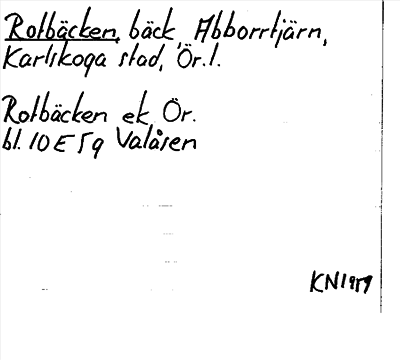 Rotbäcken, bäck, Abborrtjärn,
Karlskoga stad, Ör. l.
Rotbäcken ek. Ör.
bl. 10E5g Valåsen
KN1959